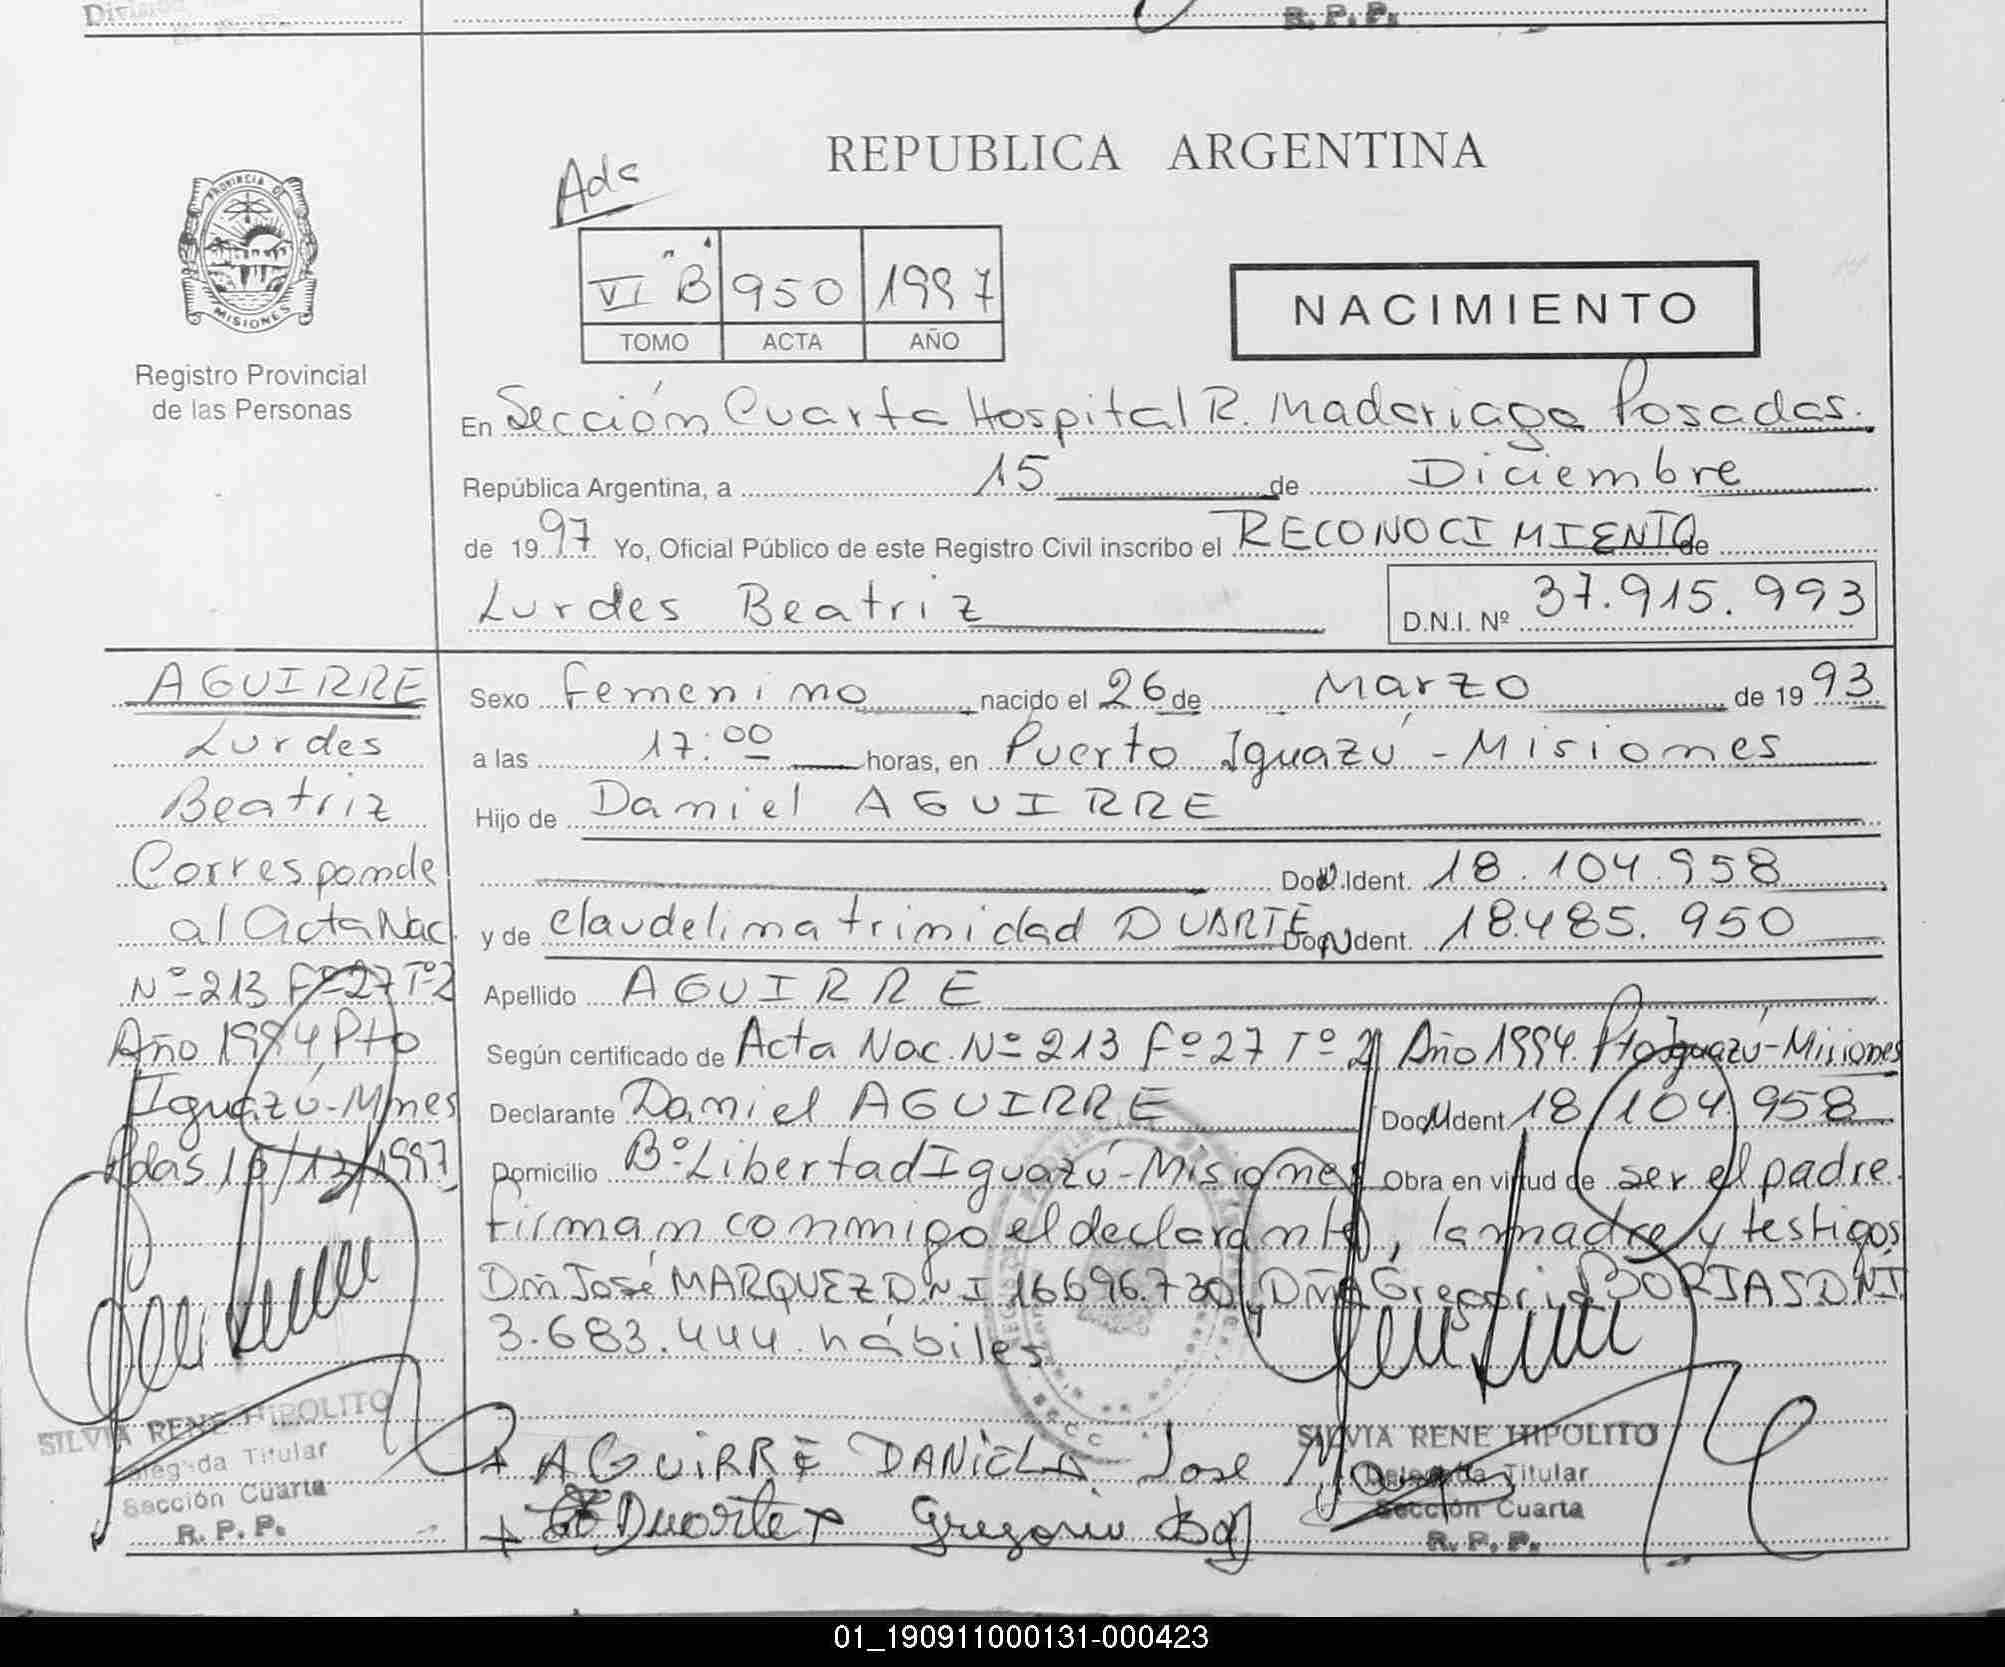 R. P. P.
REPUBLICA ARGENTINA
PROVINCIA DE
MISIONES
Registro Provincial
de las Personas
VI "B" 950 1997
TOMO ACTA AÑO
NACIMIENTO
En Sección Cuarta Hospital R. Madariaga Posadas.
República Argentina, a 15 de Diciembre
de 1997 Yo, Oficial Público de este Registro Civil inscribo el RECONOCIMIENTO de
Lurdes Beatriz D.N.I. Nº 37.915.993
AGUIRRE
Lurdes
Beatriz
Corresponde
al Acta Nac.
Nº 213 Fº 27 Tº 2
Año 1994 Pto
Iguazú-Mnes
Pdas 15/12/1997
SILVIA RENE HIPOLITO
Delegada Titular
Sección Cuarta
R. P. P.
Sexo Femenino nacido el 26 de Marzo de 1993
a las 17:00 horas, en Puerto Iguazú - Misiones
Hijo de Daniel AGUIRRE
Doc. Ident. 18.104.958
y de Claudelina trinidad DUARTE Doc. Ident. 18.485.950
Apellido AGUIRRE
Según certificado de Acta Nac. Nº 213 Fº 27 Tº 2 Año 1994. Pto Iguazú-Misiones
Declarante Daniel AGUIRRE Doc. Ident 18.104.958
Domicilio Bº Libertad Iguazú-Misiones Obra en virtud de ser el padre.
firman conmigo el declarante, la madre y testigos
Dn José MARQUEZ DNI 16.696.730 y Dña Gregoria BORJAS DNI
3.683.444 hábiles
+ AGUIRRE DANIEL Jose
+ Duarte + Gregoria
SILVIA RENE HIPOLITO
Delegada Titular
Sección Cuarta
R. P. P.
01_190911000131-000423